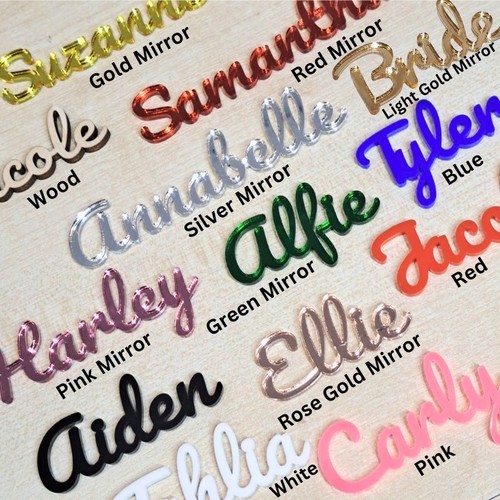 Suzanne
Gold Mirror
Samantha
Red Mirror
Bride
Light Gold Mirror
cole
Wood
Annabelle
Silver Mirror
Tyler
Blue
Alfie
Green Mirror
Jaco
Red
Harley
Pink Mirror
Ellie
Rose Gold Mirror
Aiden
White
Carly
Pink